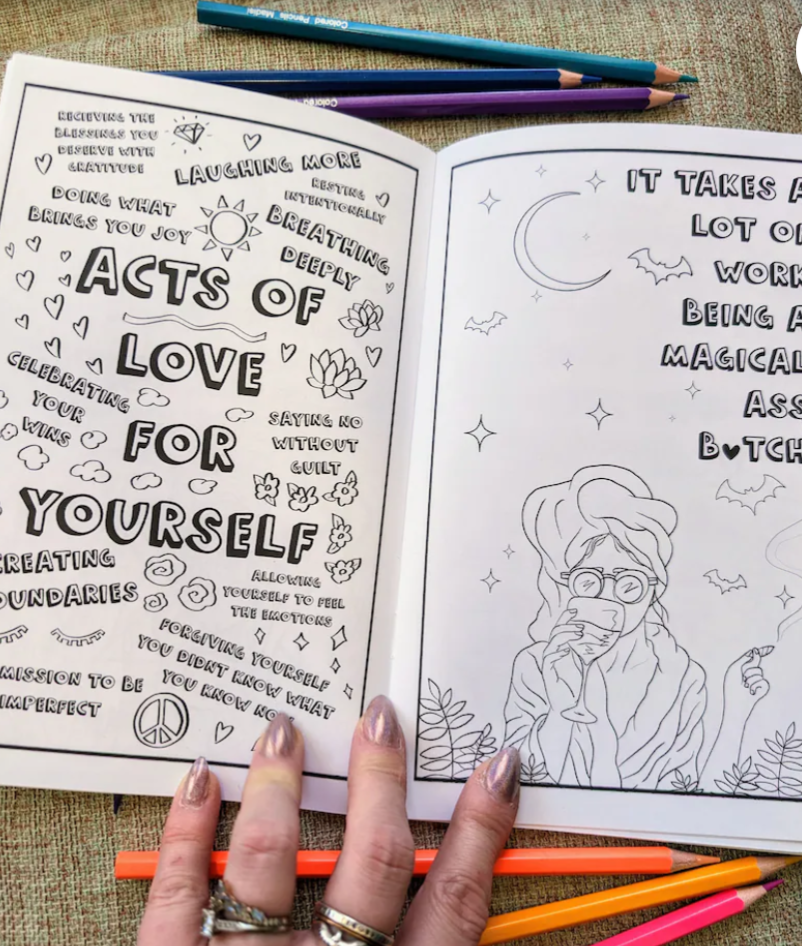 Colored Pencils Madisi
Colored
RECIEVING THE
BLESSINGS YOU
DESERVE WITH
GRATITUDE
LAUGHING MORE
RESTING
INTENTIONALLY
DOING WHAT
BRINGS YOU JOY
BREATHING
DEEPLY
ACTS OF
LOVE
FOR
YOURSELF
CELEBRATING
YOUR
WINS
SAYING NO
WITHOUT
GUILT
CREATING
OUNDARIES
ALLOWING
YOURSELF TO FEEL
THE EMOTIONS
FORGIVING YOURSELF
YOU DIDNT KNOW WHAT
YOU KNOW NO
MISSION TO BE
IMPERFECT
IT TAKES A
LOT OF
WORK
BEING A
MAGICAL
ASS
B♥TCH